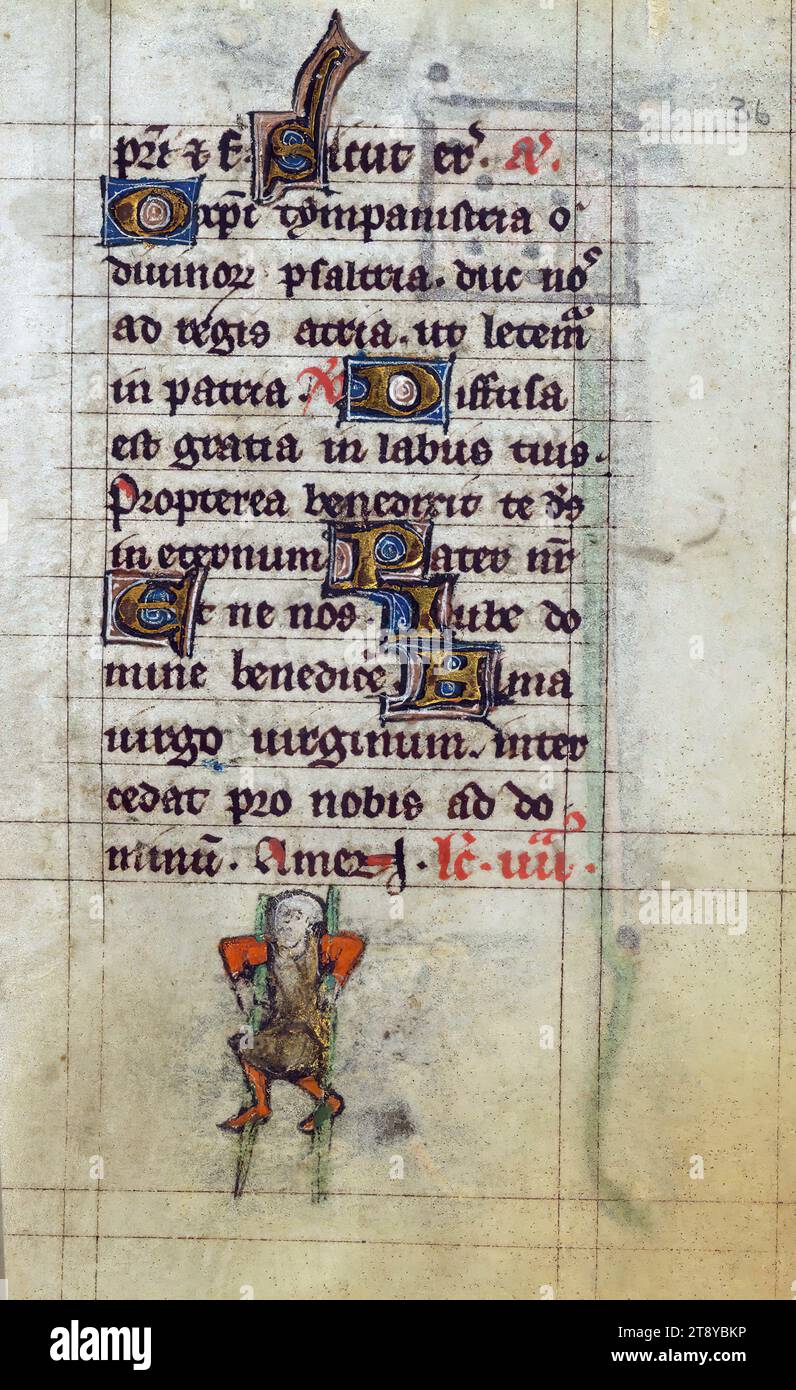 36
pri & f. Sicut er. A.
O xpi tympanistria o
diuinor psaltria. duc nos
ad regis atria. ut letem
in patria. V Diffusa
est gratia in labiis tuis.
Propterea benedixit te ds
in eternum Pater nr
Et ne nos. Iube do
mine benedice Alma
uirgo uirginum. inter
cedat pro nobis ad do
minū. Amen. lc. iiii.
alamy
alamy
alamy
alamy
Image ID: 2T8YBKP
www.alamy.com